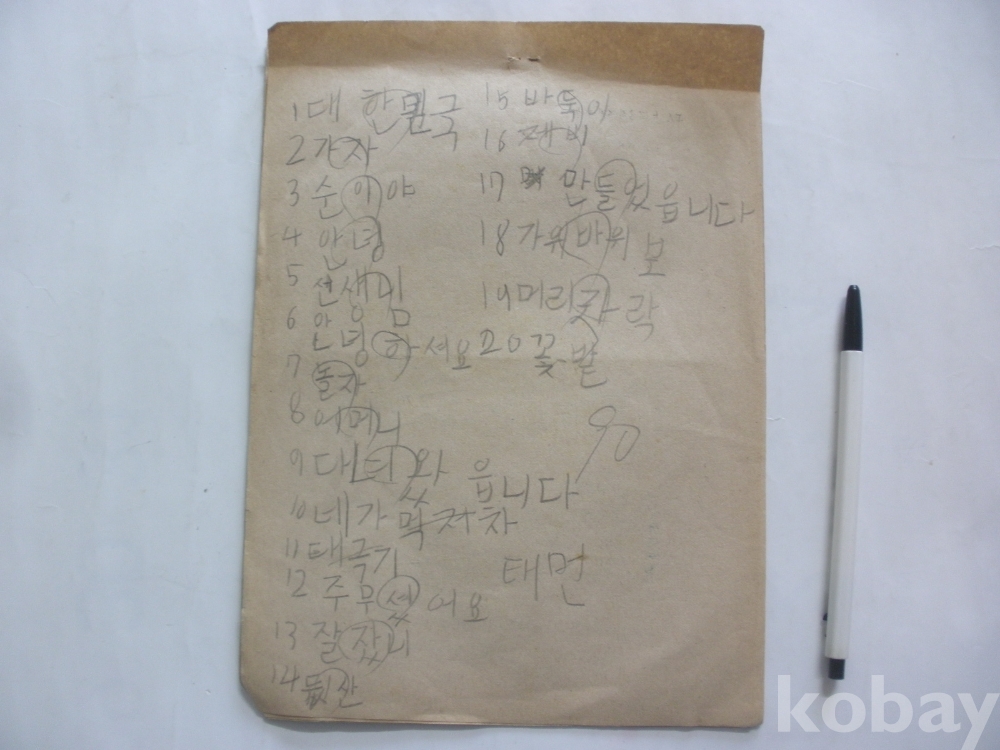 1 대 한민국
2 가자
3 순이야
4 안녕
5 선생님
6 안녕하세요
7 돌자
8 어머니
9 다녀왔읍니다
10 네가 저차
11 태극기
12 주무셨어요
13 잘잤니
14 뒷산
15 바둑이
16 제비
17 만들었읍니다
18 가위바위보
19 머리카락
20 꽃밭
90
태먼
kobay